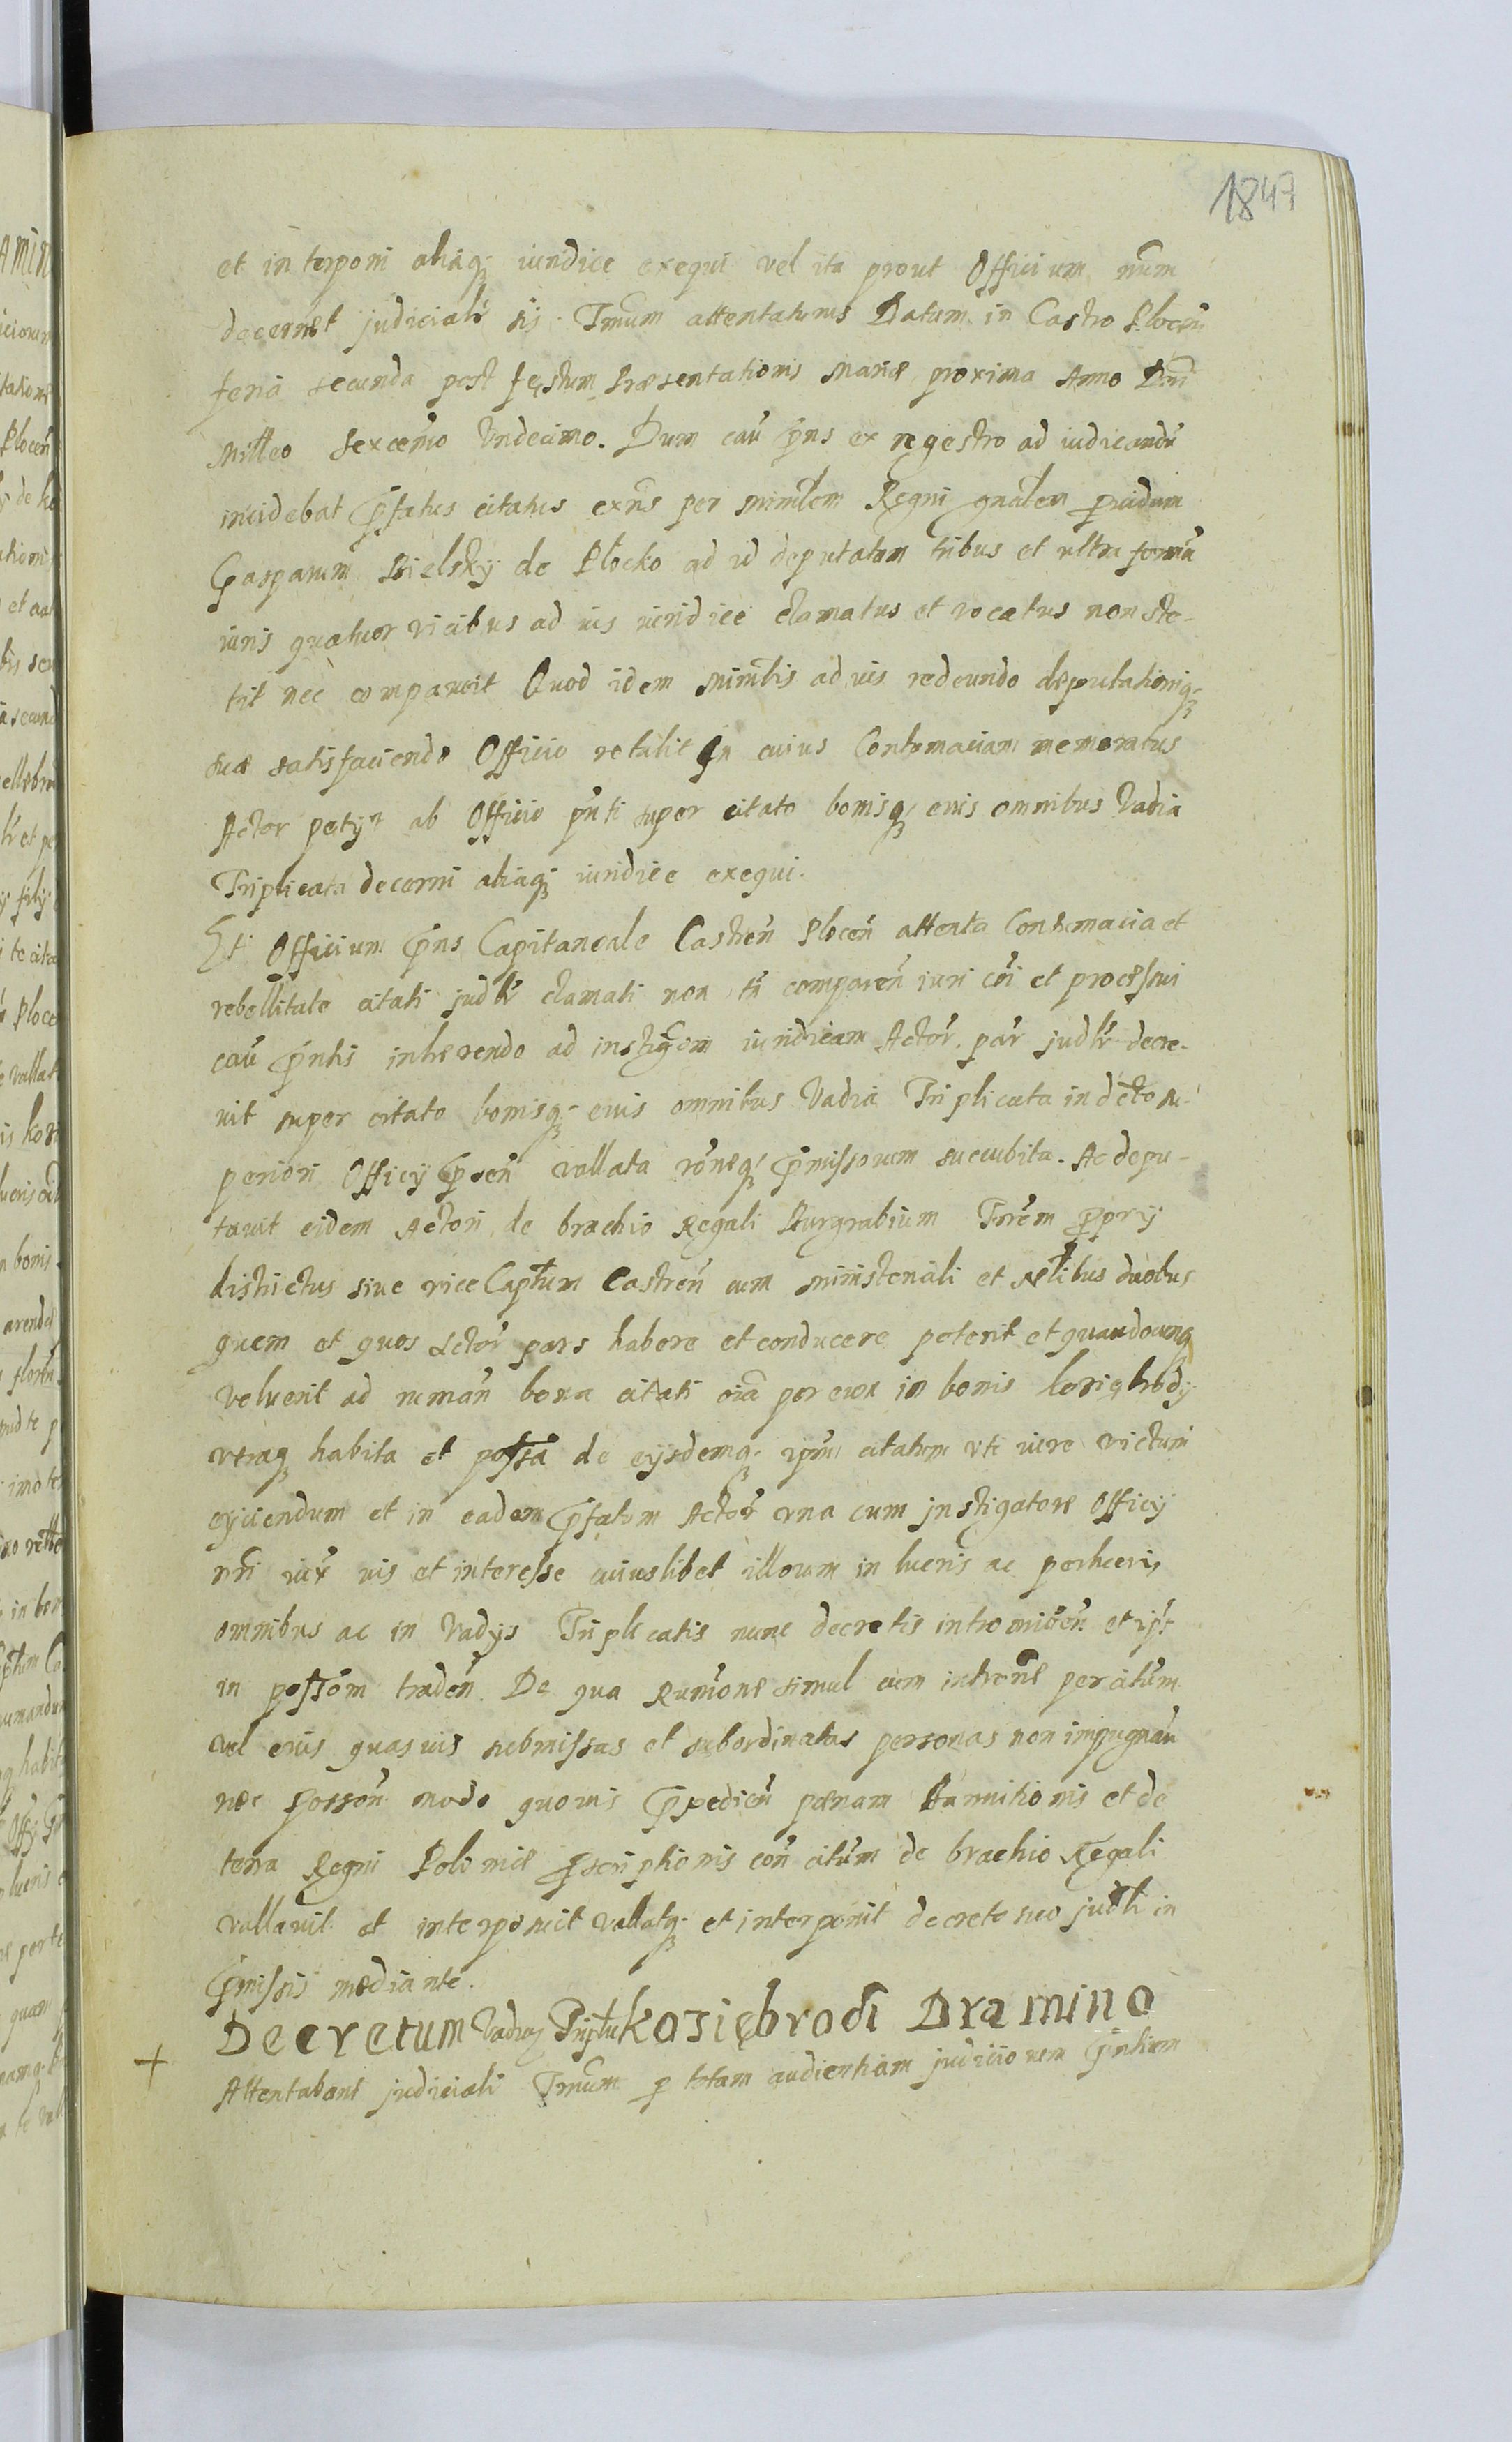 1847
et interponi aliaq; iuridice exequi vel ita prout Officium nrum
decernet judicialr sis Trnum attentaturus Datum in Castro Plocen
feria secunda post festum Præsentationis Mariæ proxima Anno Dni
Milleo sexcemo Undecimo. Dum cau pns ex regestro ad iudicandu
incidebat pfatus citatus exns per Mintlem Regni gnalem pudum
Gasparum Bielsky de Plocko ad id deputatum tribus et ultra formu
iuris quatuor vicibus ad ius iuridice clamatus et vocatus non ste-
tit nec comparuit Quod idem Minrlis ad ius redeundo deputationiq;
suæ satisfaciendo Officio retulit In cuius Contumaciam memoratus
Actor petyt ab Officio pnti super citato bonisq; eius omnibus Vadia
Triplicata decerni aliaq; iuridice exequi.
Et Officium pns Capitaneale Castren Plocen attenta Contumacia et
rebellitate citati judlr clamati non tn comparen iuri coi et processui
cau pntis inherendo ad instigom iuridicam Actor. par judlr decre-
vit super citato bonisq; eius omnibus Vadia Triplicata in dcto su-
periori Officy pren vallata roneq; pmissorum succubita. Ac depu-
tavit eidem Actori de brachio Regali Burgrabium Trem proprij
districtus sive viceCaptum Castren cum Ministeriali et Nlibus duobus
quem et quos Actor pars habere et conducere poterit et quandocunq
voluerit ad ruman bona citati oia per eum in bonis kosiebrody
utraq habita et possa de eysdemq; ipm citatum uti iure victum
eyiciendum et in eadem pfatum Actor una cum jnstigatore Officy
nri iux ius et interesse cuiuslibet illorum in lucris ac perlucris
omnibus ac in Vadys Triplicatis nunc decretis intromitten et ijs
in possom traden. De qua Rumone simul cum introne per citum
vel eius quasvis submissas et subordinatas personas non impugnan
nec posson modo quovis ppedien pænam Bannitionis et de
terra Regni Poloniæ pscriptionis con citum de brachio Regali
vallavit et interposuit vallatq; et interponit decreto suo judli in
pmissis mediante.
Decretum Vadior Triplu kosiębrodi Dramino
+ Attentabant judiciali Trnum p totam audientiam judiciorum pntium